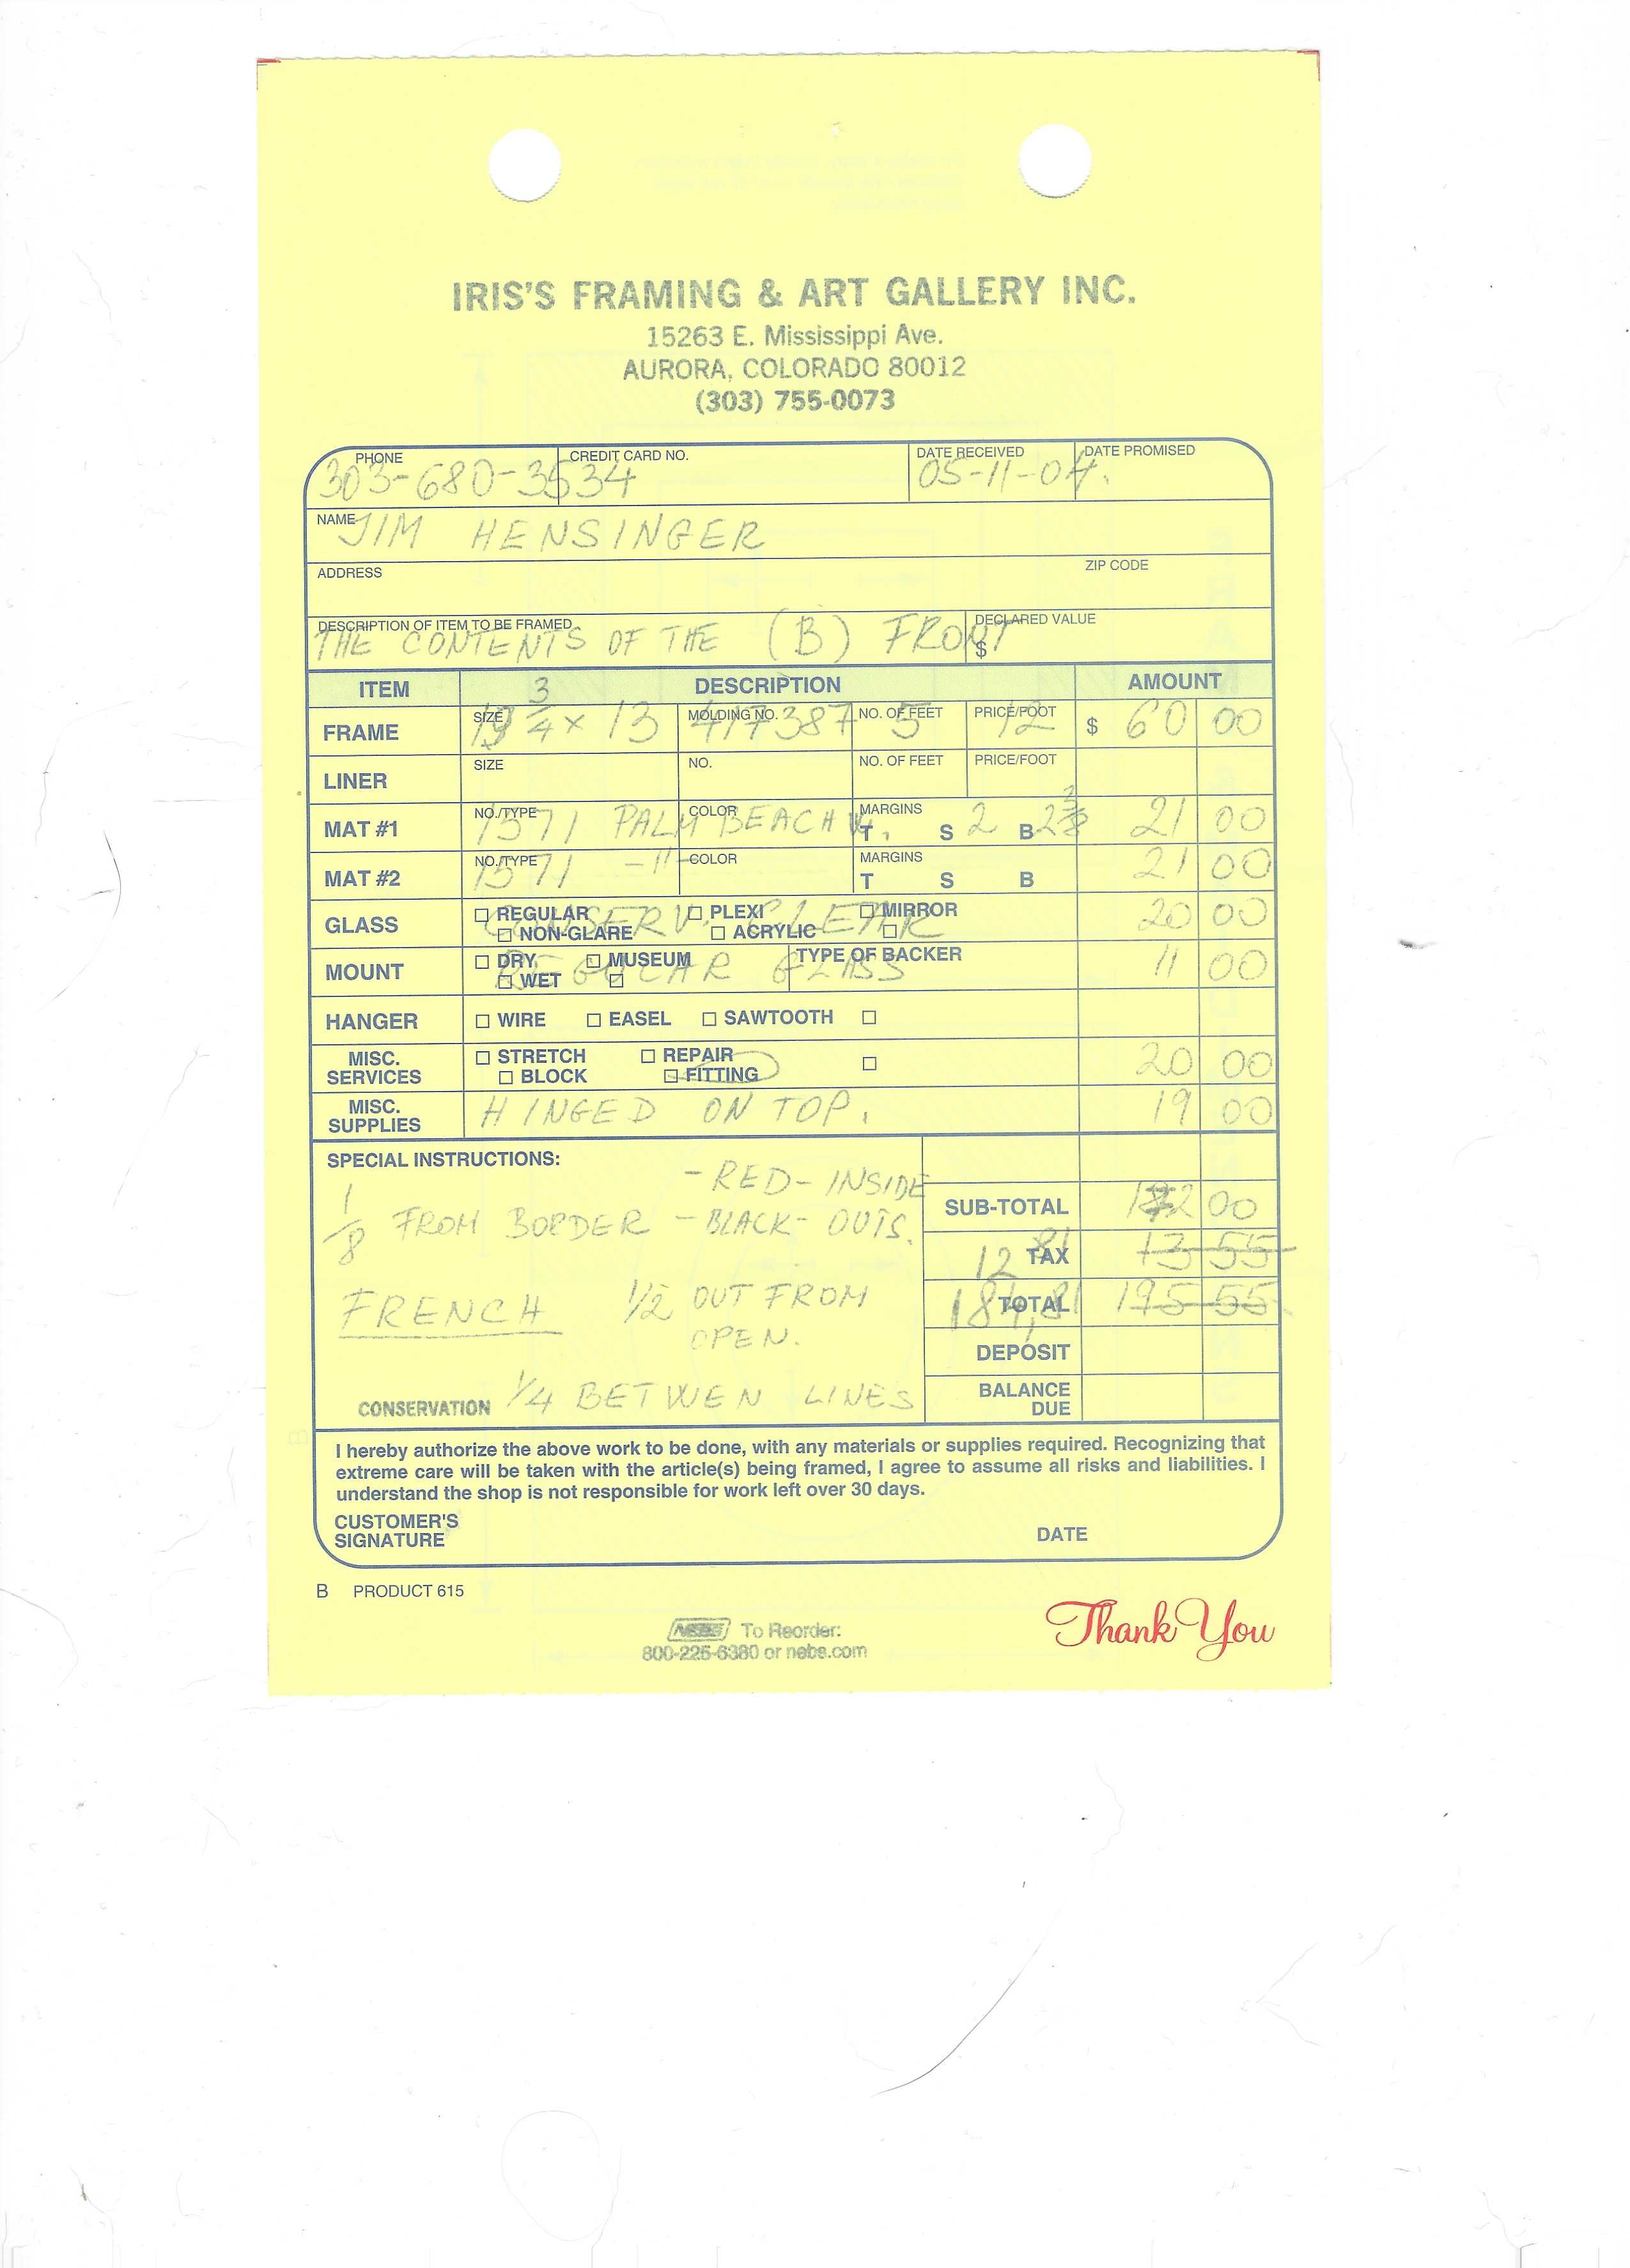 IRIS'S FRAMING & ART GALLERY INC.
15263 E. Mississippi Ave.
AURORA, COLORADO 80012
(303) 755-0073
PHONE CREDIT CARD NO. DATE RECEIVED DATE PROMISED
303-680-3534 05-11-04.
NAME JIM HENSINGER
ADDRESS ZIP CODE
DESCRIPTION OF ITEM TO BE FRAMED DECLARED VALUE
THE CONTENTS OF THE (B) FRONT $
ITEM DESCRIPTION AMOUNT
FRAME SIZE 3/4 x 13 MOLDING NO. 417387 NO. OF FEET 5 PRICE/FOOT 12 $ 60 00
LINER SIZE NO. NO. OF FEET PRICE/FOOT
MAT #1 NO./TYPE 1571 PALM BEACH COLOR MARGINS T S 2 B 21 00
MAT #2 NO./TYPE 1571 -"- COLOR MARGINS T S B 21 00
GLASS REGULAR PLEXI MIRROR 20 00
NON-GLARE ACRYLIC
CONSERV. CLEAR
MOUNT DRY MUSEUM TYPE OF BACKER 11 00
WET
REGULAR GLASS
HANGER WIRE EASEL SAWTOOTH
MISC. SERVICES STRETCH REPAIR 20 00
BLOCK FITTING
MISC. SUPPLIES HINGED ON TOP. 19 00
SPECIAL INSTRUCTIONS:
- RED - INSIDE
1/8 FROM BORDER - BLACK - OUTS.
FRENCH 1/2 OUT FROM
OPEN.
CONSERVATION 1/4 BETWEN LINES
SUB-TOTAL 172 00
TAX 12 81 13 55
TOTAL 184,81 195 55
DEPOSIT
BALANCE DUE
I hereby authorize the above work to be done, with any materials or supplies required. Recognizing that
extreme care will be taken with the article(s) being framed, I agree to assume all risks and liabilities. I
understand the shop is not responsible for work left over 30 days.
CUSTOMER'S
SIGNATURE DATE
B PRODUCT 615
Thank You
NEBS To Reorder:
800-225-6380 or nebs.com